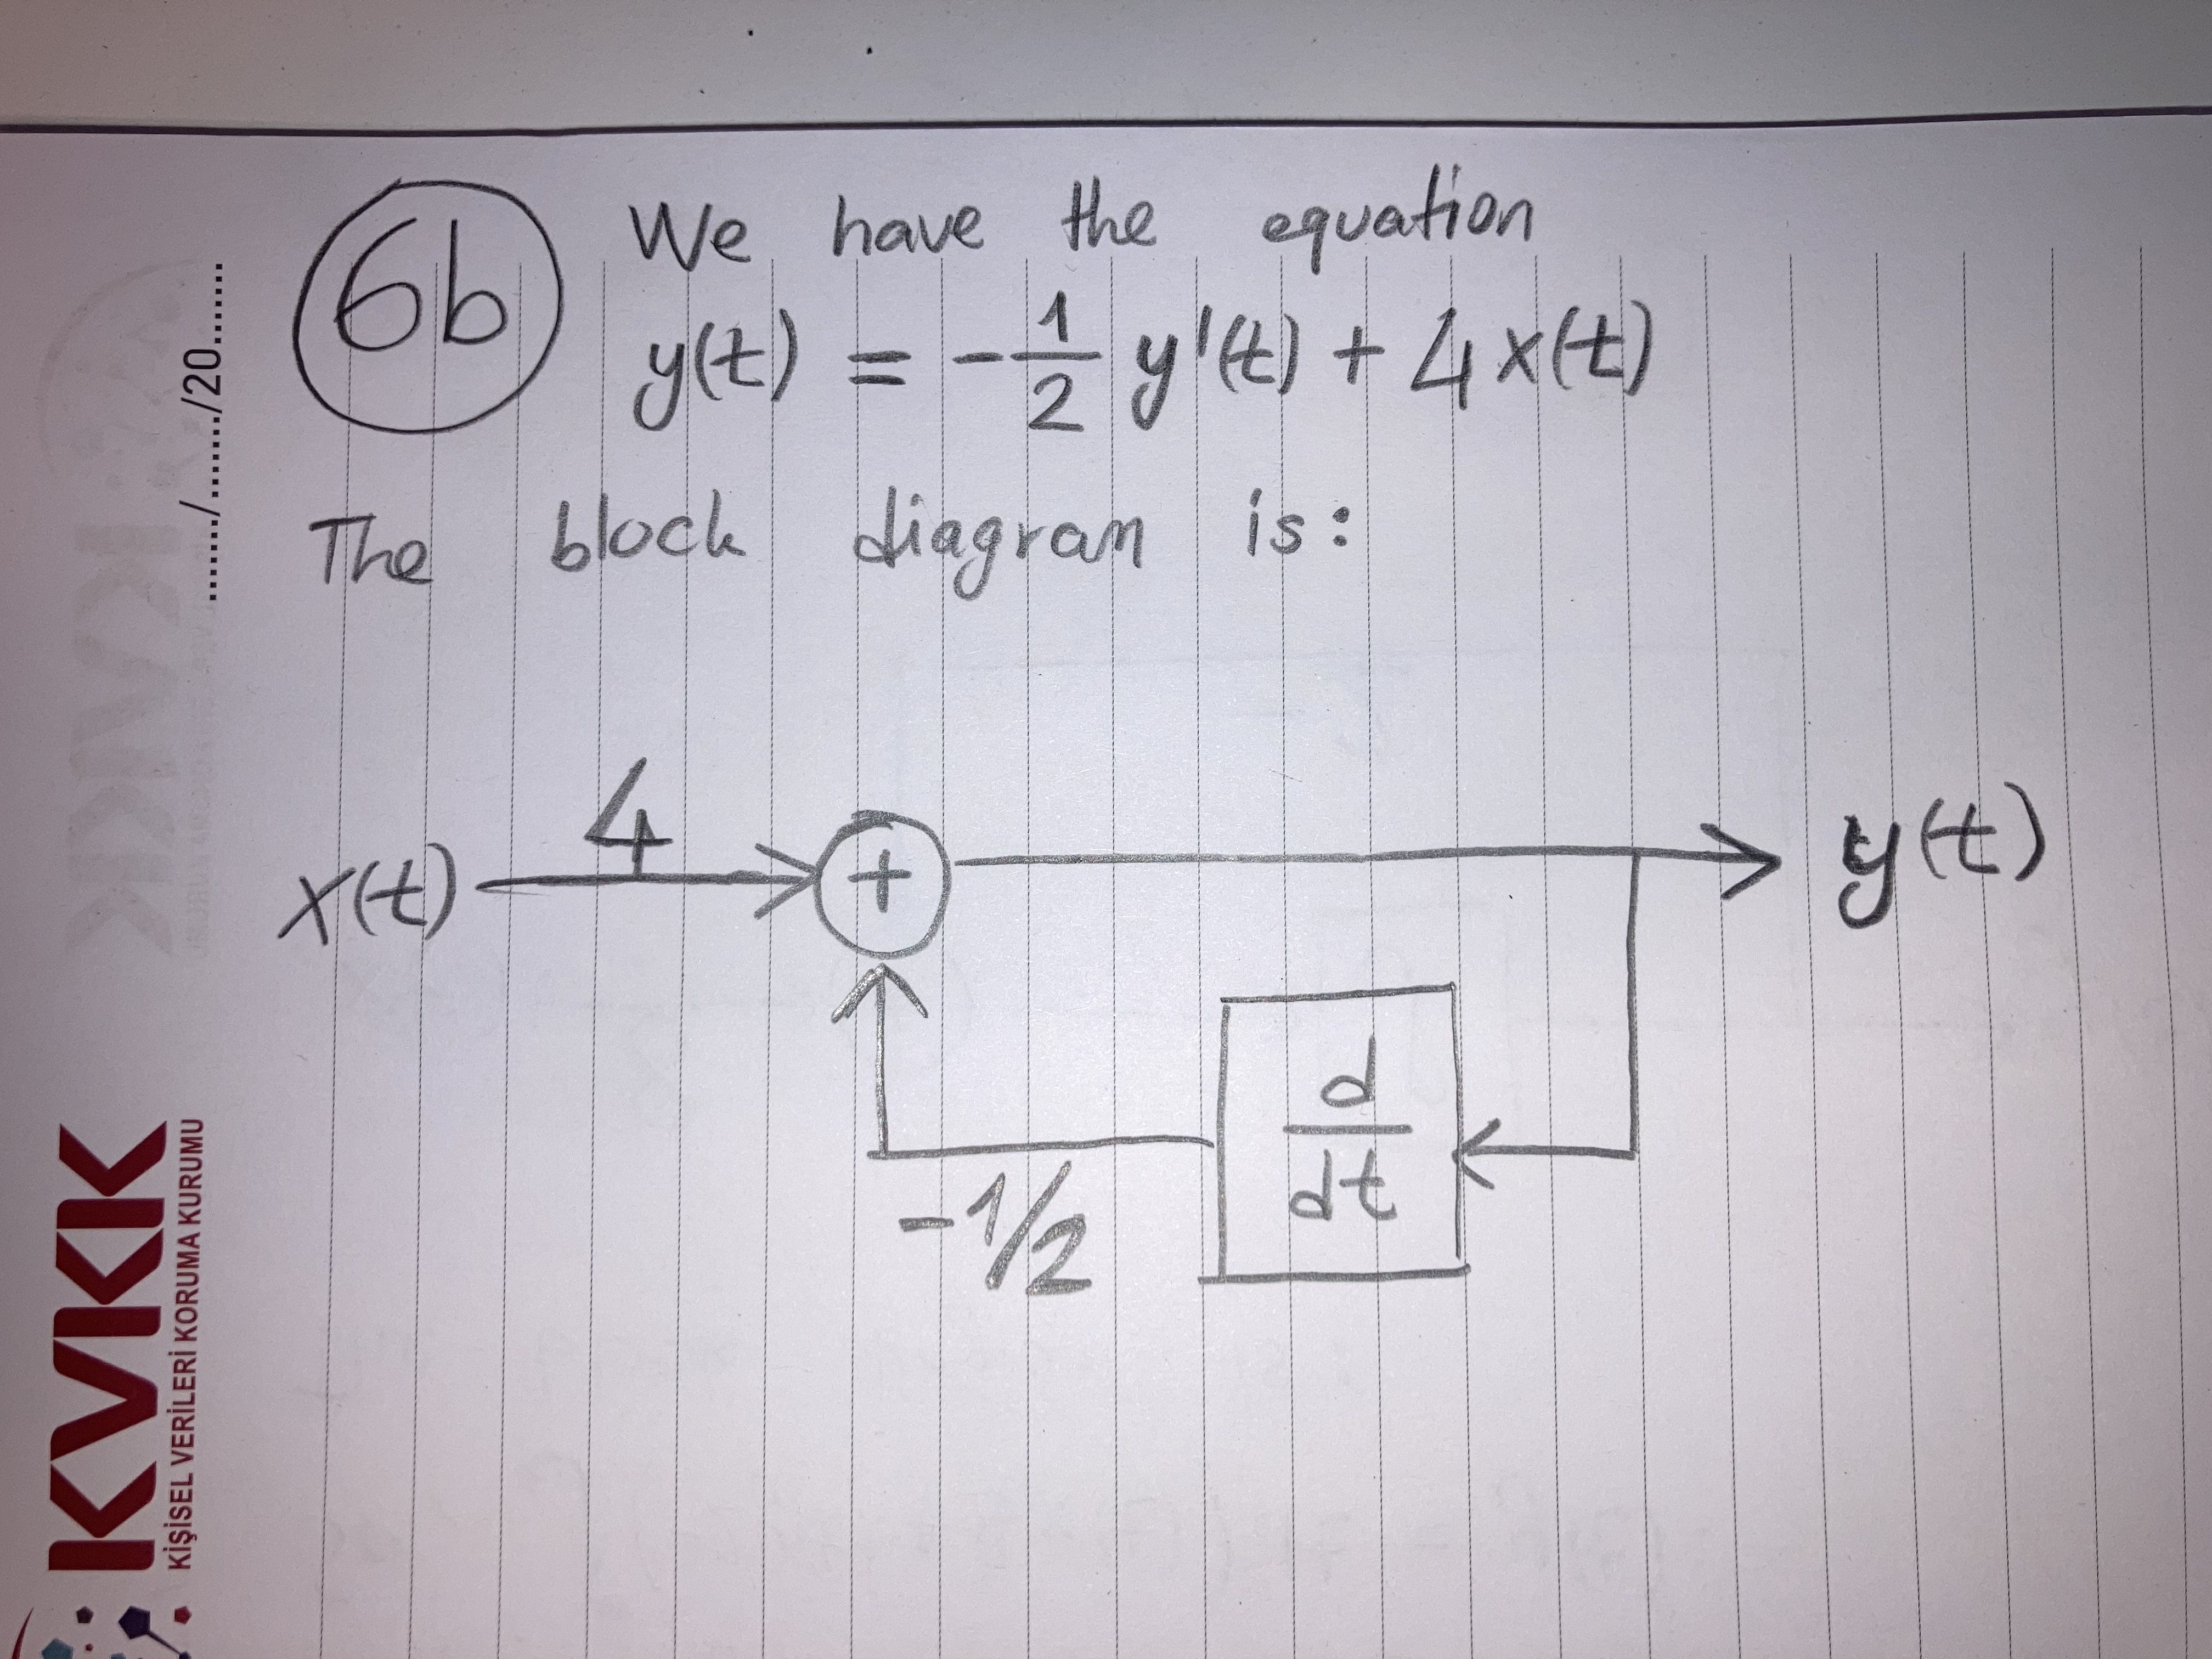 KVKK
KİŞİSEL VERİLERİ KORUMA KURUMU
......./......./20.......
6b
We have the equation
y(t) = -1/2 y'(t) + 4x(t)
The block diagram is:
x(t) 4 + y(t)
-1/2 d/dt